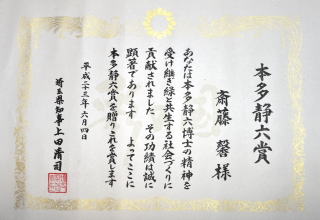 本多静六賞
斎藤 馨 様
あなたは本多静六博士の精神を
受け継ぎ緑と共生する社会づくりに
貢献されました その功績は誠に
顕著であります よってここに
本多静六賞を贈りこれを賞します
平成二十三年六月四日
埼玉県知事 上田清司